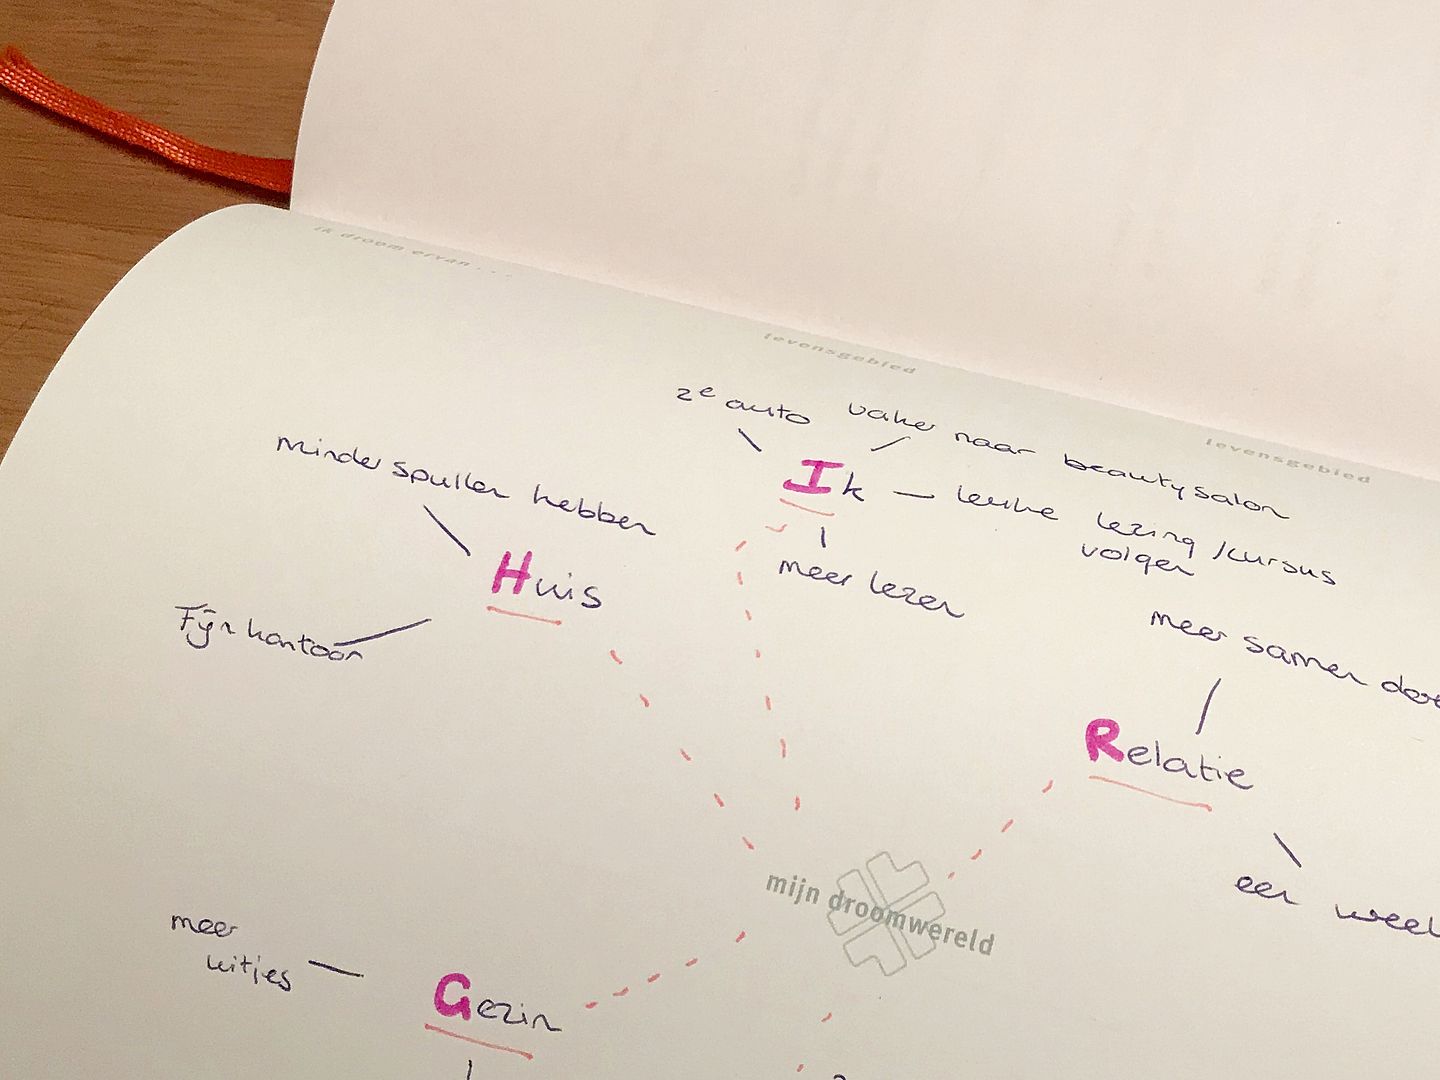 ik droom ervan . . .
levensgebied
levensgebied
2e auto
vaker naar beautysalon
Minder spullen hebben
Ik
leuke lezing / cursus
volgen
meer lezen
Huis
Fijn kantoor
meer samen
Relatie
een
mijn droomwereld
meer
uitjes
Gezin